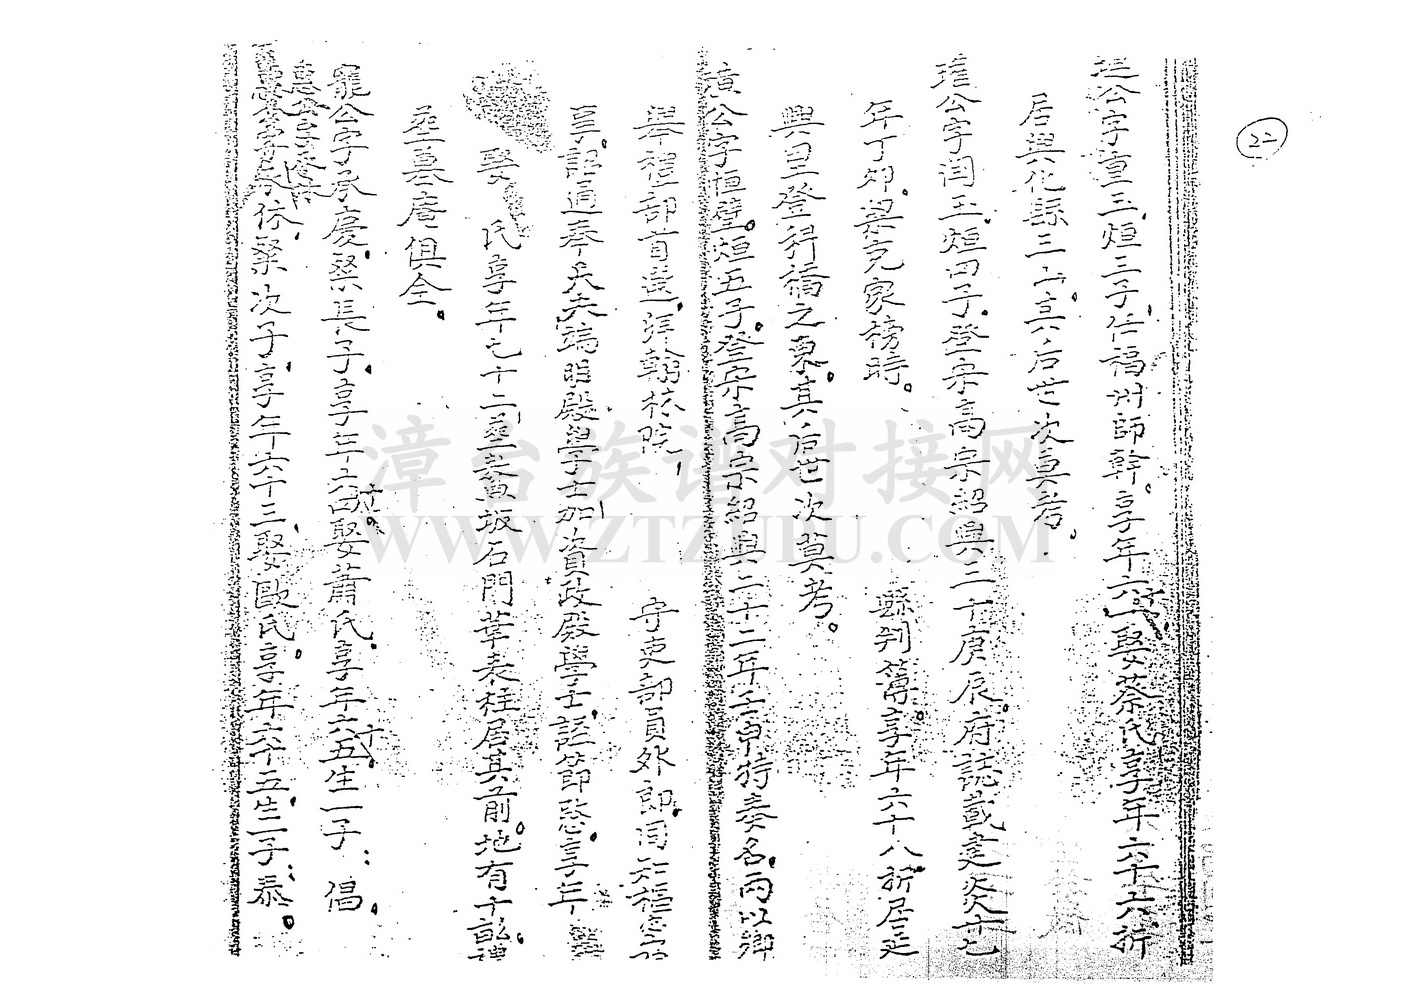 22
公字重玉烜三子仕福州師幹。享年六十一娶蔡氏享年六十六折
居興化縣三山其后世次莫考。
公字閏玉烜四子登宋高宗紹興三十庚辰府誌載建炎廿七
年丁卯梁克家榜時。縣判簿享年六十八折居延
興里登科橋之東其后世次莫考。
公字恒璧烜五子登宋高宗紹興二十二年壬申特奏名兩以鄉
舉禮部首選拜翰林院 守吏部員外郎同知樞密院
享誥通奉大夫端明殿學士加資政殿學士諡節愍享年
娶 氏享年七十二葬 黃坂石門華表柱居其前地有千
墓庵俱全。
寵公字承慶桼長子享年六十四娶蕭氏享年六十五生一子：倡
惠公字
公字 依桼次子享年六十三娶歐氏享年六十五生一子：泰。
漳台族谱对接网
WWW.ZTZUPU.COM